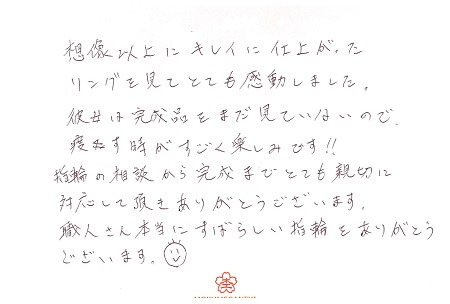 想像以上にキレイに仕上がった
リングを見てとても感動しました。
彼女は完成品をまだ見ていないので、
渡す時がすごく楽しみです!!
指輪の相談から完成までとても親切に
対応して頂きありがとうございます。
職人さん本当にすばらしい指輪をありがとう
ございます。